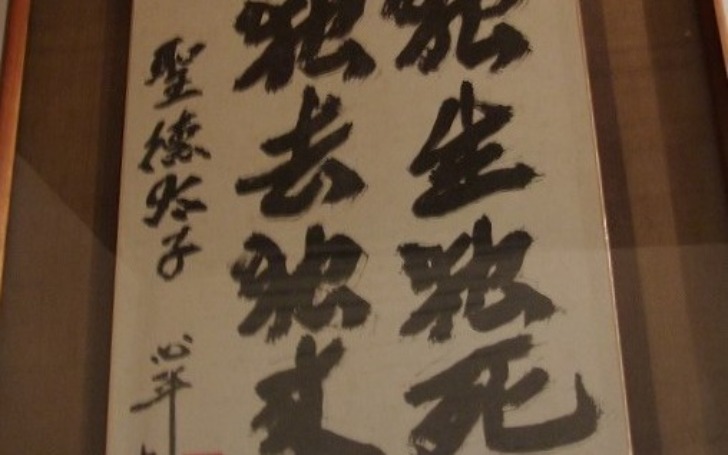 独生独死
独去独来
聖徳太子 心平